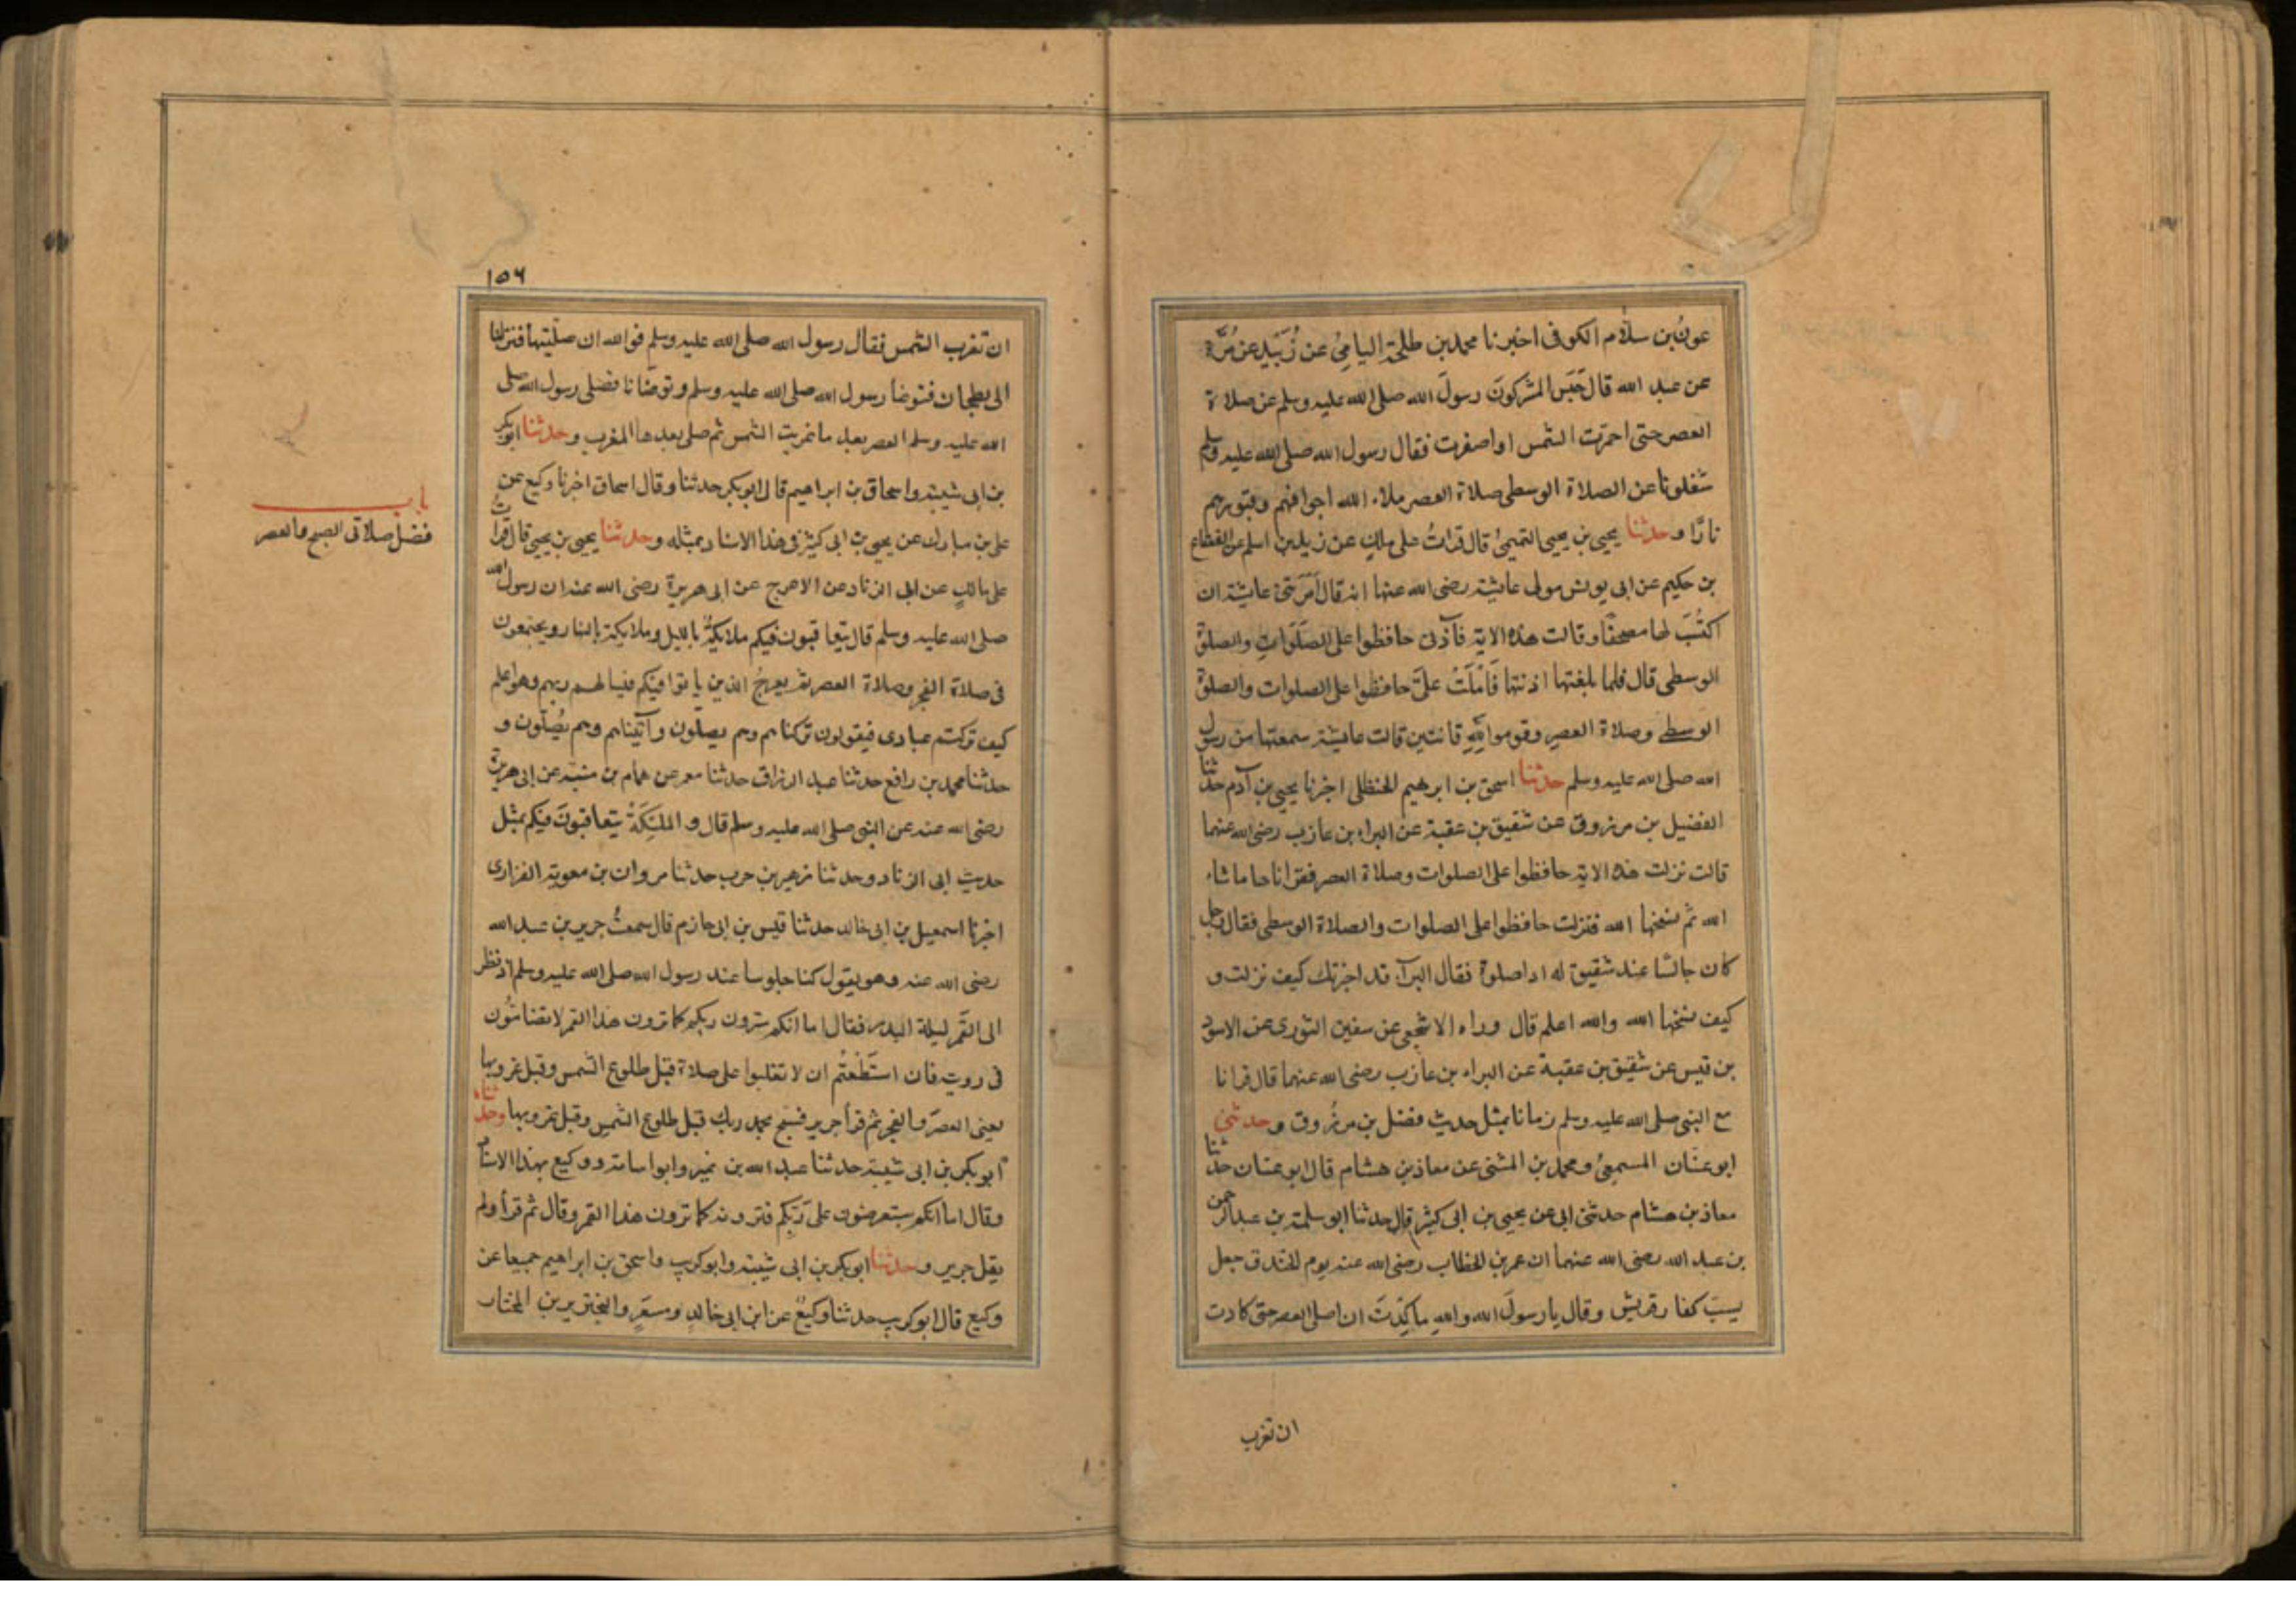 عونُ بن سلّام الكوفى اخبرنا محمد بن طلحة اليامىُ عن زُبَيدٍ عن مُرَّة
عن عبد الله قال حَبَس المشركونَ رسولَ الله صلى الله عليه وسلم عن صلاة
العصر حتى احمرّت الشمس او اصفرت فقال رسول الله صلى الله عليه وسلم
شغلونا عن الصلاة الوسطى صلاة العصر ملاء الله اجوافهم وقبورهم
نارًا وحدثنا يحيى بن يحيى التميمىُ قال قرات على مالكٍ عن زيد بن اسلم عن القعقاع
بن حكيم عن ابى يونس مولى عايشة رضى الله عنها انه قال اَمَرَتنى عايشة ان
اكتُبَ لها مصحفًا وقالت هذه الاية فآذنى حافظوا على الصَلَوَاتِ والصلوة
الوسطى قال فلما بلغتها اذنتها فَاَملَتْ علىَّ حافظوا على الصلوات والصلوة
الوسطى وصلاة العصرِ وقوموا للهِ قانتين قالت عايشة سمعتها من رسول
الله صلى الله عليه وسلم حدثنا اسحق بن ابرهيم الحنظلى اخبرنا يحيى بن آدم حدثنا
الفضيل بن مرزوق عن شقيق بن عقبة عن البراء بن عازب رضى الله عنهما
قالت نزلت هذه الاية حافظوا على الصلوات وصلاة العصر فقراناها ما شاء
الله ثم نسخها الله فنزلت حافظوا على الصلوات والصلاة الوسطى فقال رجل
كان جالسًا عند شقيق له اداصلوة فقال البرآء قد اخبرتك كيف نزلت و
كيف نسخها الله والله اعلم قال وراه الاشجعى عن سفين الثورى عن الاسود
بن قيس عن شقيق بن عقبة عن البراء بن عازب رضى الله عنهما قال قرانا
مع النبى صلى الله عليه وسلم زمانا بمثل حديث فضل بن مرزُوق وحدثنى
ابو غسَّان المسمعىُ ومحمد بن المثنى عن معاذ بن هشام قال ابو غسان حدثنا
معاذ بن هشام حدثنى ابى عن يحيى بن ابى كثير قال حدثنا ابو سلمة بن عبد الرحمن
بن عبد الله رضى الله عنهما ان عمر بن الخطاب رضى الله عنه يوم الخندق جعل
يسبّ كفار قريش وقال يا رسولَ الله والله ماكِدْتَ ان اصلى العصر حتى كادت
ان تغرب
١٥٦
ان تغرب الشمس فقال رسول الله صلى الله عليه وسلم فوالله ان صلّيتها فنزلنا
الى بطحان فتوضأ رسول الله صلى الله عليه وسلم وتوضّانا فصلى رسول الله صلى
الله عليه وسلم العصر بعد ما غربت الشمس ثم صلى بعدها المغرب وحدثنا ابو بكر
بن ابى شيبة واسحاق بن ابراهيم قال ابو بكر حدثنا وقال اسحاق اخبرنا وكيع عن
على بن مبارك عن يحيى بن ابى كثير فى هذا الاسناد بمثله وحدثنا يحيى بن يحيى قال قراتُ
على مالكٍ عن ابى الزناد عن الاعرج عن ابى هريرة رضى الله عنه ان رسول الله
صلى الله عليه وسلم قال يتعاقبون فيكم ملايكةٌ بالليل وملايكة بالنهار ويجتمعون
فى صلاة الفجر وصلاة العصر ثم يعرجُ الذين باتوا فيكم فيسالهم ربهم وهو اعلم
كيف تركتم عبادى فيقولون تركناهم وهم يصلون وآتيناهم وهم يُصلّون و
حدثنا محمد بن رافع حدثنا عبد الرزاق حدثنا معمر عن همام بن منبّه عن ابى هريرة
رضى الله عنه عن النبى صلى الله عليه وسلم قال و الملئِكَةُ يتعاقبونَ فيكم بمثل
حديث ابى الزناد وحدثنا زهير بن حرب حدثنا مروان بن معوية الفزارى
اخبرنا اسمعيل بن ابى خالد حدثنا قيس بن ابى حازم قال سمعتُ جرير بن عبد الله
رضى الله عنه وهو يقول كنا جلوسا عند رسول الله صلى الله عليه وسلم اذ نظر
الى القَمر ليلة البدر فقال اما انكم سترون ربكم كما ترون هذا القمر لا تضامُّون
فى رويته فان استَطَعْتُم ان لا تغلبوا على صلاة قبل طلوع الشمس وقبل غروبها
يعنى العصرَ والفجر ثم قرأ جرير فسبح بحمد ربك قبل طلوع الشمس وقبل غروبها وحدثناه
ابو بكر بن ابى شيبة حدثنا عبد الله بن نمير وابو اسامة ووكيع بهذا الاسناد
وقال اما انكم ستعرضون على رَبّكم فترونه كما ترون هذا القمر وقال ثم قرأ ولم
يقل جرير وحدثنا ابو بكر بن ابى شيبة وابو كريب واسحق بن ابراهيم جميعا عن
وكيع قال ابو كريب حدثنا وكيعٌ عن ابن ابى خالدٍ ومسعَرٍ والبخترى بن المختار
باب
فضل صلاتى الصبح والعصر